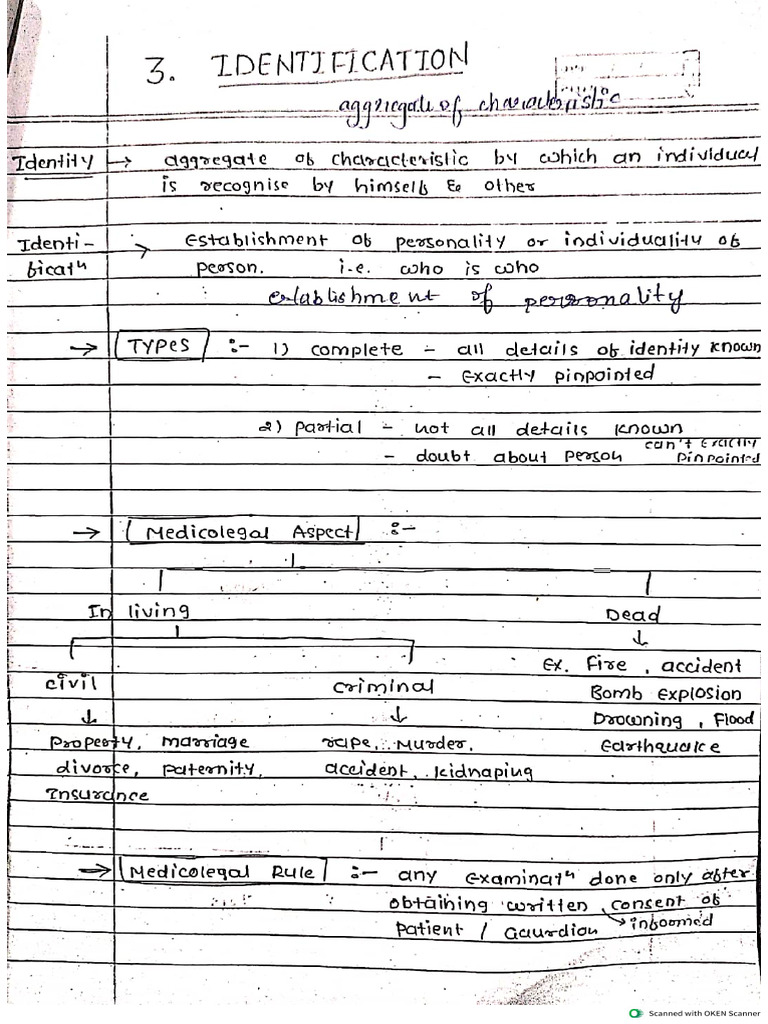 3. IDENTIFICATION
aggregate of characteristic
Identity → aggregate of characteristic by which an individual
is recognise by himself & other
Identi-
ficatⁿ → Establishment of personality or individuality of
person. i.e. who is who
establishment of personality
→ Types :- 1) complete - all details of identity known
- Exactly pinpointed
2) partial - not all details known
- doubt about person can't exactly
pinpointed
→ Medicolegal Aspect :-
In living Dead
civil criminal Ex. Fire, accident
Bomb Explosion
Drowning, Flood
property, marriage rape, Murder, Earthquake
divorce, paternity, accident, kidnaping
Insurance
→ Medicolegal Rule :- any examinatⁿ done only after
obtaining written, consent of
patient / Gaurdian → infoomed
Scanned with OKEN Scanner